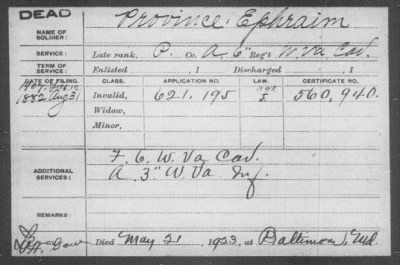 DEAD
NAME OF SOLDIER: Province, Ephraim
SERVICE: Late rank, P. Co. A, 6" Reg't W. Va Cav.
TERM OF SERVICE: Enlisted , 1 Discharged , 1
DATE OF FILING. CLASS. APPLICATION NO. LAW. CERTIFICATE NO.
1882 Aug 31 Invalid, 621.195 560,940.
Widow,
Minor,
ADDITIONAL SERVICES: F. 6 W. Va Cav.
A 3" W. Va Inf.
REMARKS:
Died May 21, 1923, at Baltimore, Md.